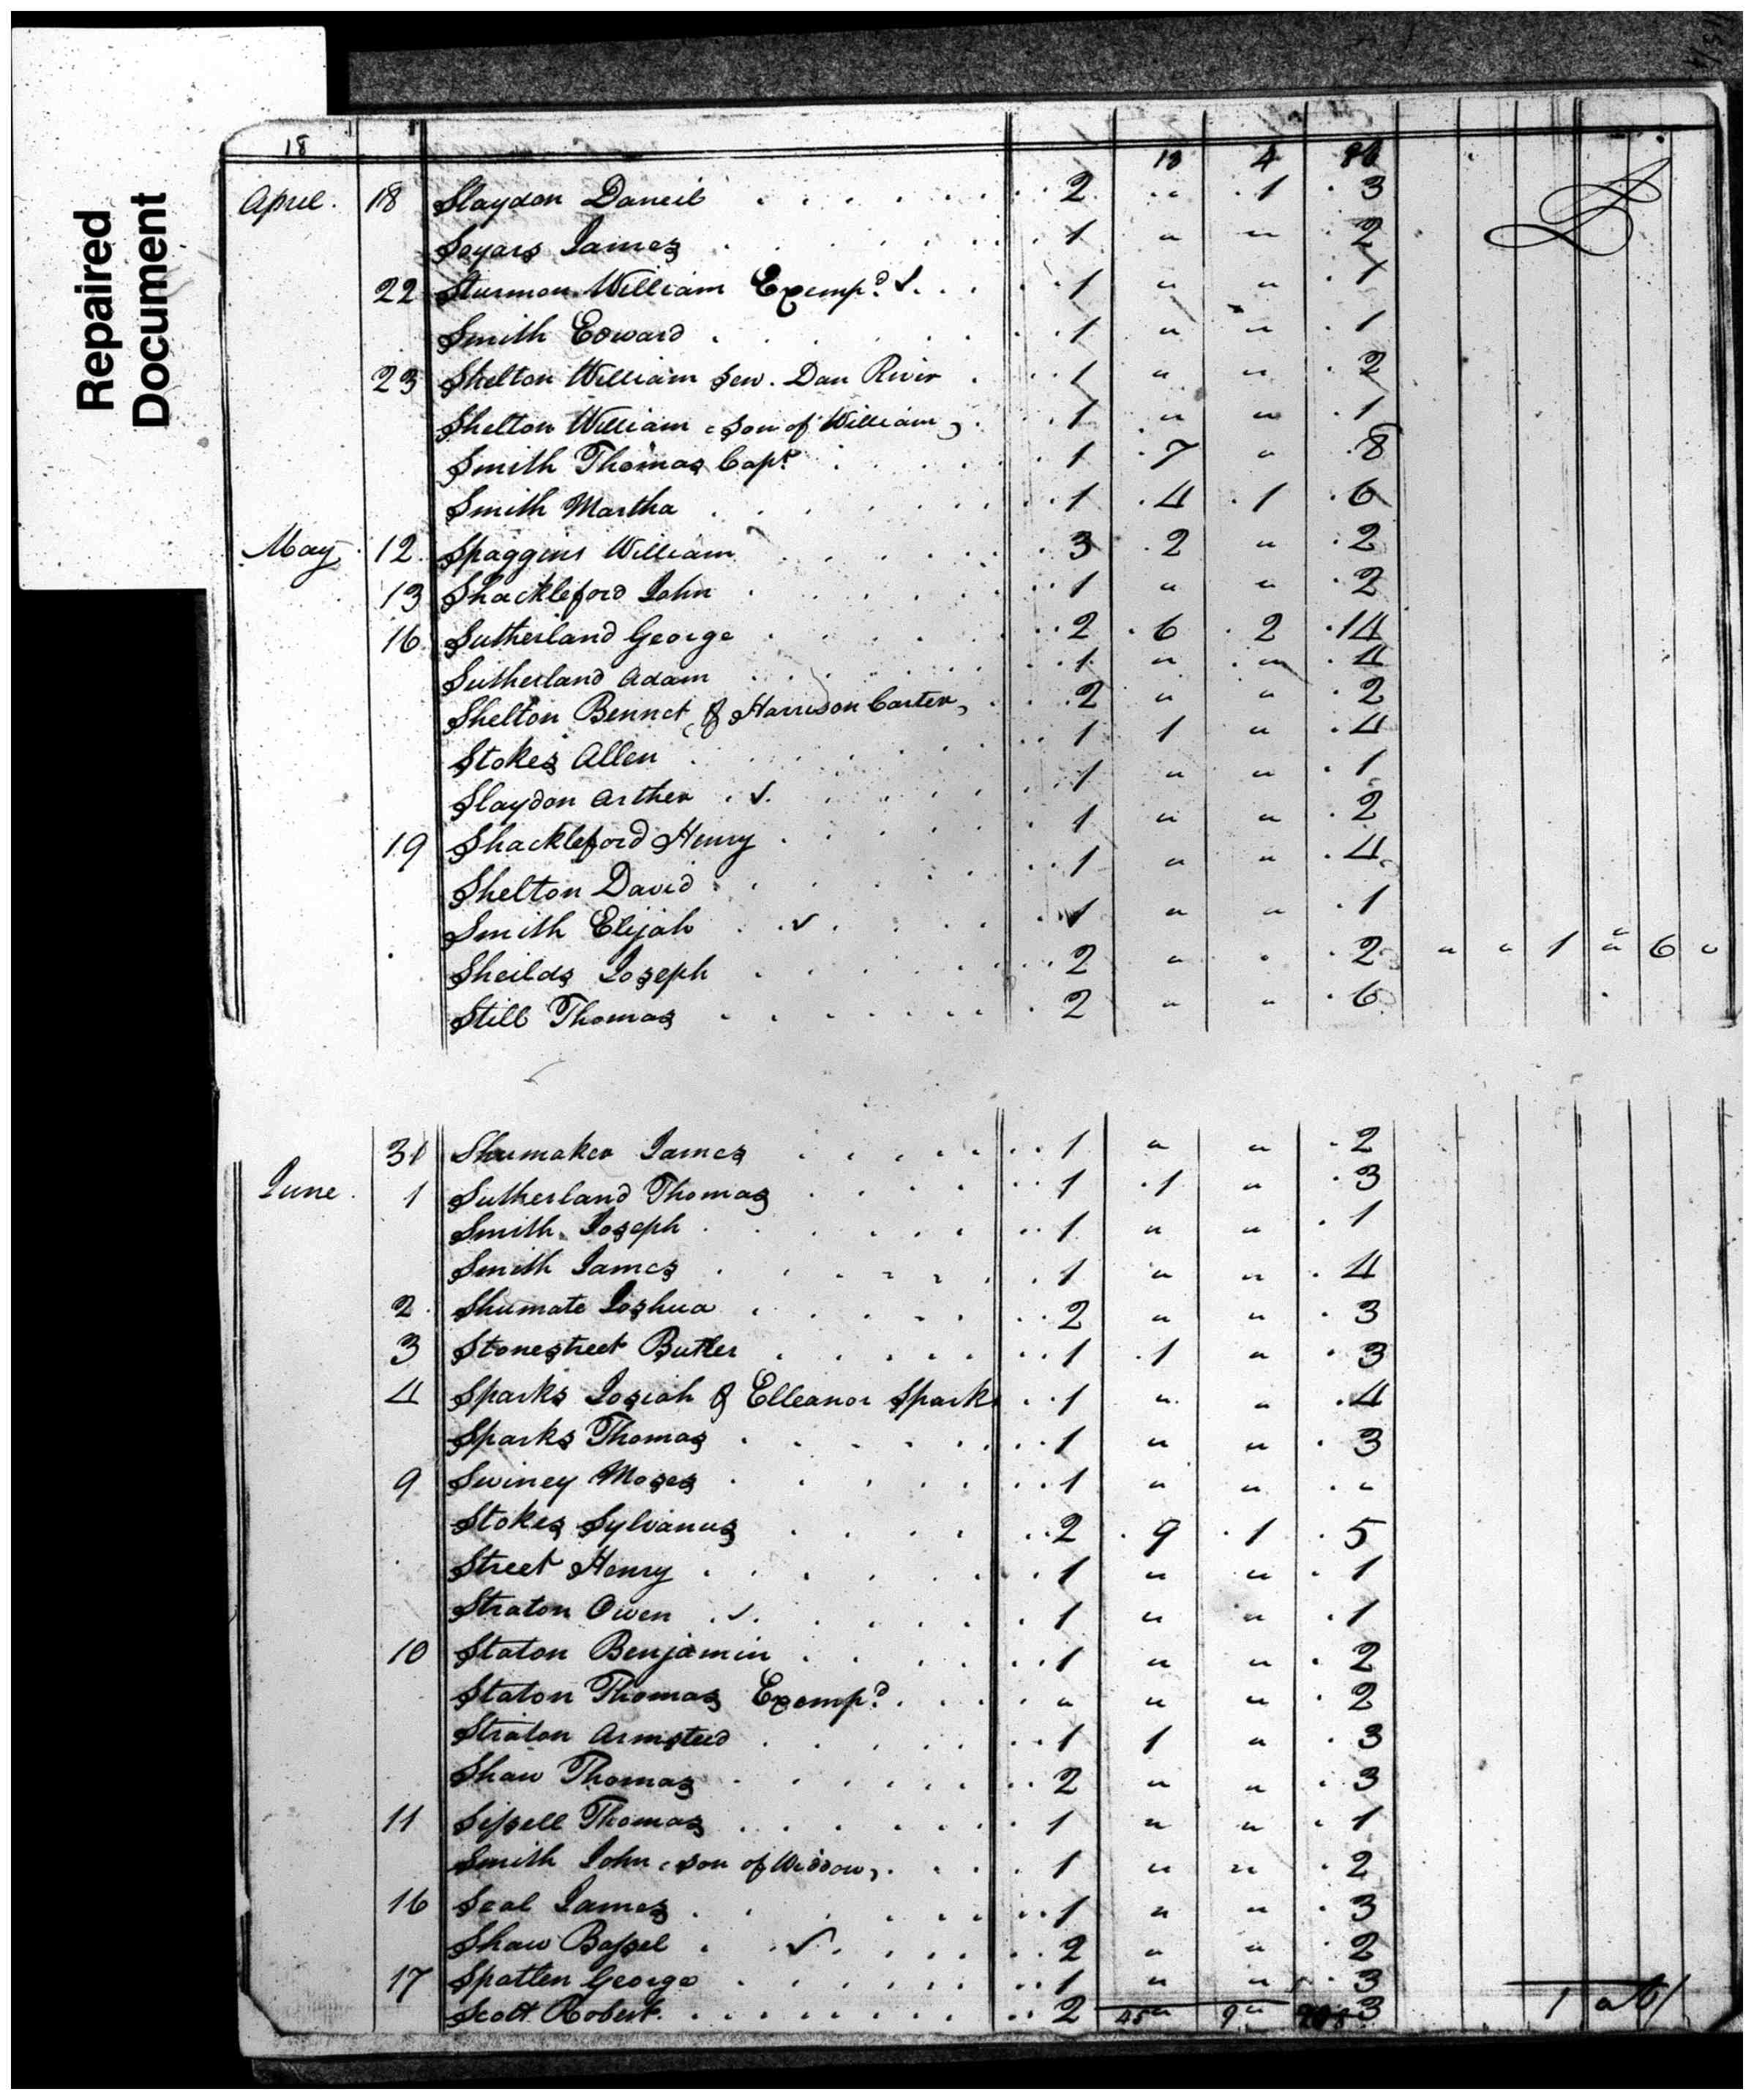 Repaired
Document
18
13 4 86
April. 18 Slaydon Daneil 2 " 1 3
Soyars James 1 " " 2
22 Sturmon William Exempd. ✓ 1 " " 1
Smith Edward 1 " " 1
23 Shelton William Sen. Dan River 1 " " 2
Shelton William (son of William) 1 " " 1
Smith Thomas Capt. 1 7 " 8
Smith Martha 1 4 1 6
May 12 Spaggins William 3 2 " 2
13 Shackleford John 1 " " 2
16 Sutherland George 2 6 2 14
Sutherland Adam 1 " " 4
Shelton Bennet (& Harrison Carter) 2 " " 2
Stokes Allen 1 1 " 4
Slaydon Arther ✓ 1 " " 1
19 Shackleford Henry 1 " " 2
Shelton David 1 " " 4
Smith Elijah ✓ 1 " " 1
Sheilds Joseph 2 " " 2 " " 1 " 6 "
Still Thomas 2 " " 6
31 Shumaker James 1 " " 2
June. 1 Sutherland Thomas 1 1 " 3
Smith Joseph 1 " " 1
Smith James 1 " " 4
2 Shumate Joshua 2 " " 3
3 Stonestreet Butler 1 1 " 3
4 Sparks Josiah & Elleanor Sparks 1 " " 4
Sparks Thomas 1 " " 3
9 Swiney Moses 1 " " "
Stokes Sylvanus 2 9 1 5
Street Henry 1 " " 1
Straton Owen ✓ 1 " " 1
10 Staton Benjamin 1 " " 2
Staton Thomas Exempd. " " " 2
Straton Armsted 1 1 " 3
Shaw Thomas 2 " " 3
11 Sissell Thomas 1 " " 1
Smith John (son of Widdow) 1 " " 2
16 Seal James 1 " " 3
Shaw Bassel ✓ 2 " " 2
17 Spatten George 1 " " 3
Scott Robert 2 " " 3
45 9 1